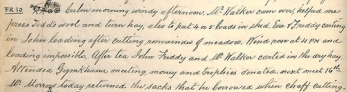 FR 10 Calm morning windy afternoon. Mr Walker came over, helped me
press Teddy wool and turn hay, also to put 4 or 5 loads in shed. Eva & Freddy carting
in John loading after cutting remainder of meadow. Wind rose at 4 P.M and
loading impossible. After tea John Freddy and Mr Walker carted in the dry hay.
Attended Gymkhana meeting, money and trophies donated, next meet 16th.
Mr Thorne today returned the sacks that he borrowed when chaff cutting.